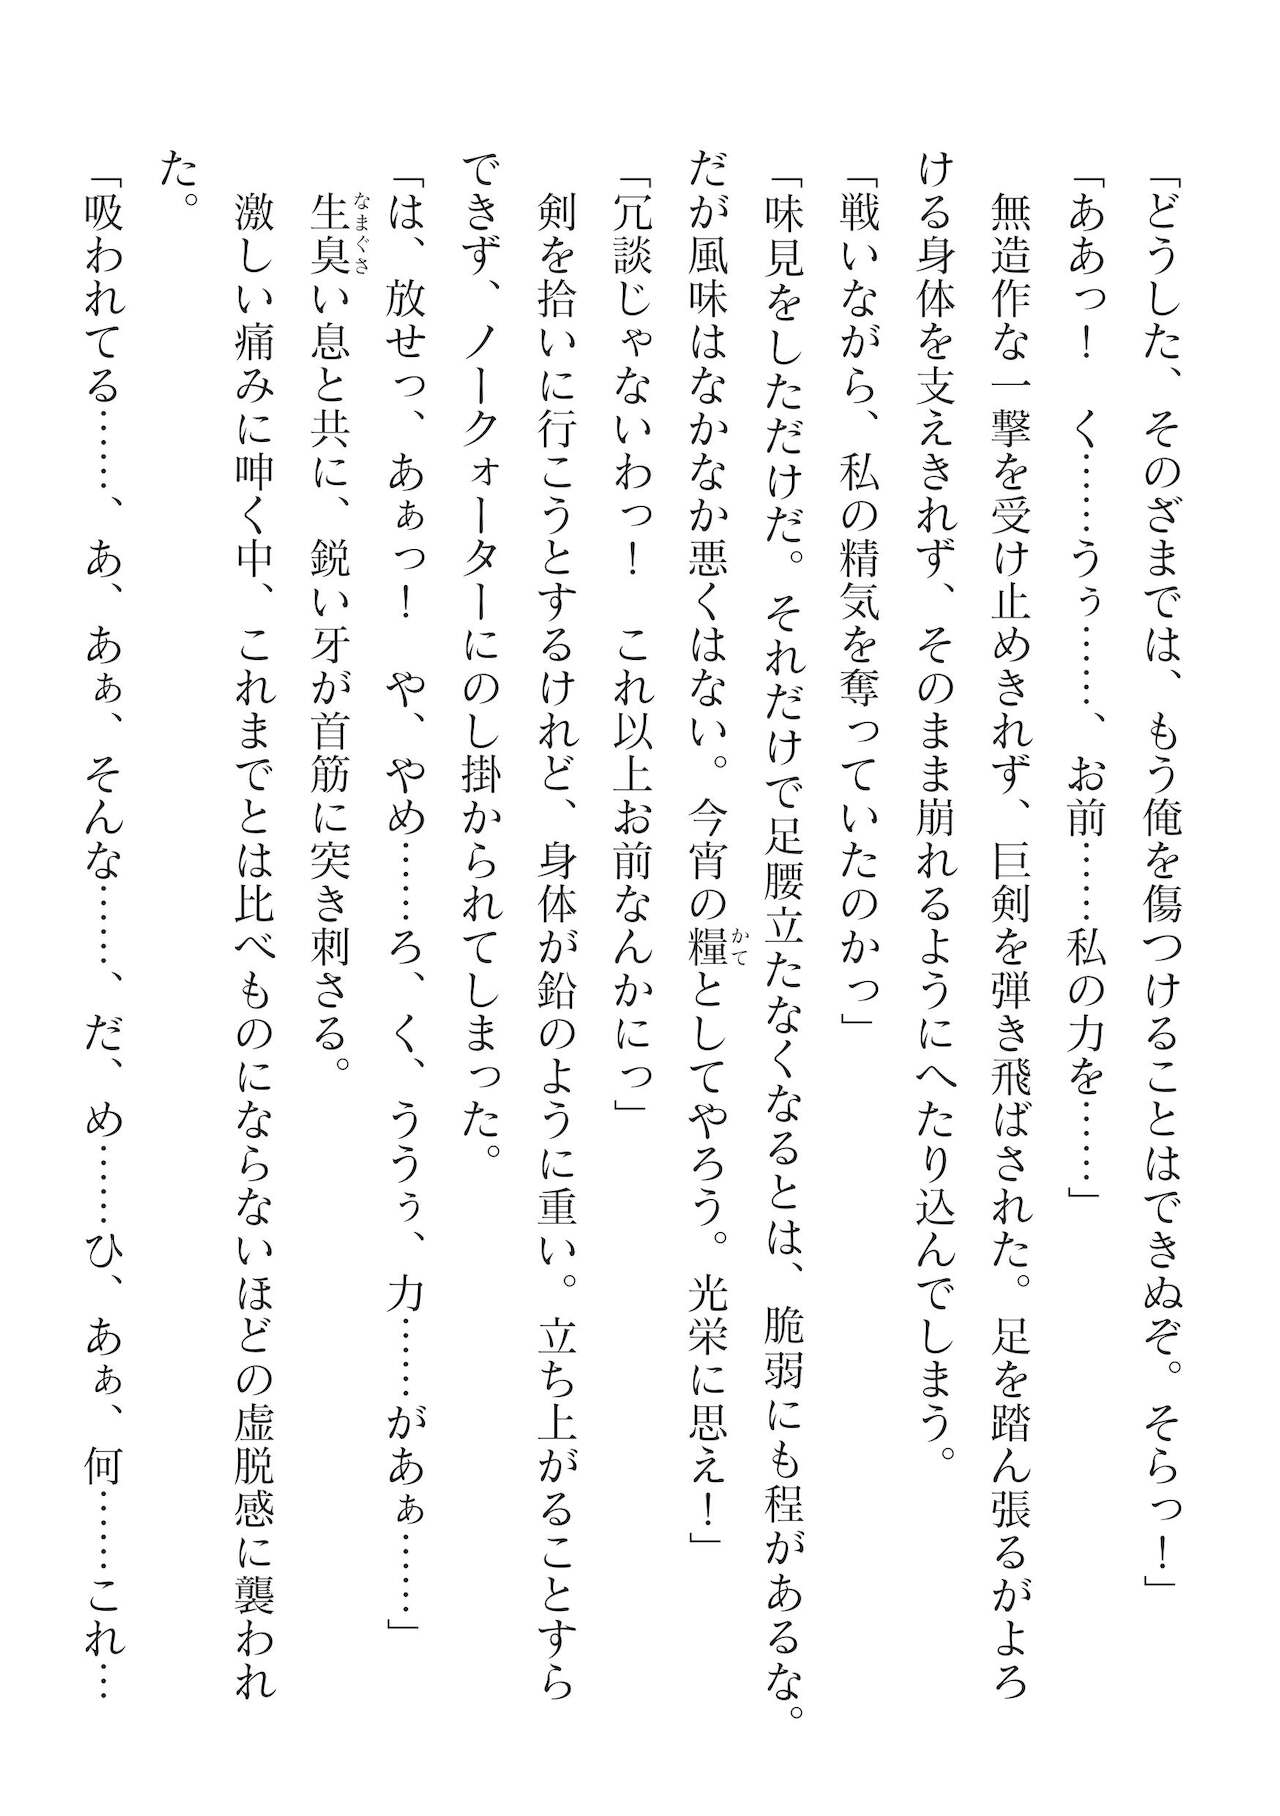 「どうした、そのざまでは、もう俺を傷つけることはできぬぞ。そらっ！」
「ああっ！　く……うぅ……、お前……私の力を……」
　無造作な一撃を受け止めきれず、巨剣を弾き飛ばされた。足を踏ん張るがよろ
ける身体を支えきれず、そのまま崩れるようにへたり込んでしまう。
「戦いながら、私の精気を奪っていたのかっ」
「味見をしただけだ。それだけで足腰立たなくなるとは、脆弱にも程があるな。
だが風味はなかなか悪くはない。今宵の糧かてとしてやろう。光栄に思え！」
「冗談じゃないわっ！　これ以上お前なんかにっ」
　剣を拾いに行こうとするけれど、身体が鉛のように重い。立ち上がることすら
できず、ノークォーターにのし掛かられてしまった。
「は、放せっ、あぁっ！　や、やめ……ろ、く、ううぅ、力……があぁ……」
　生臭なまぐさい息と共に、鋭い牙が首筋に突き刺さる。
　激しい痛みに呻く中、これまでとは比べものにならないほどの虚脱感に襲われ
た。
「吸われてる……、あ、あぁ、そんな……、だ、め……ひ、あぁ、何……これ…